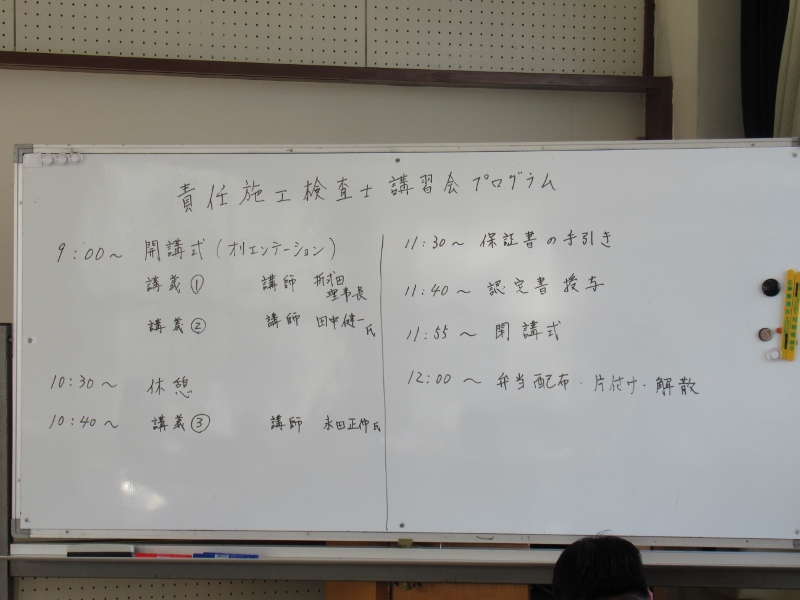 責任施工検査士講習会プログラム
9:00～ 開講式(オリエンテーション)
講義① 講師
理事長
講義② 講師 田中健一氏
10:30～ 休憩
10:40～ 講義③ 講師 永田正伸氏
11:30～ 保証書の手引き
11:40～ 認定書授与
11:55～ 閉講式
12:00～ 弁当配布・片付け・解散